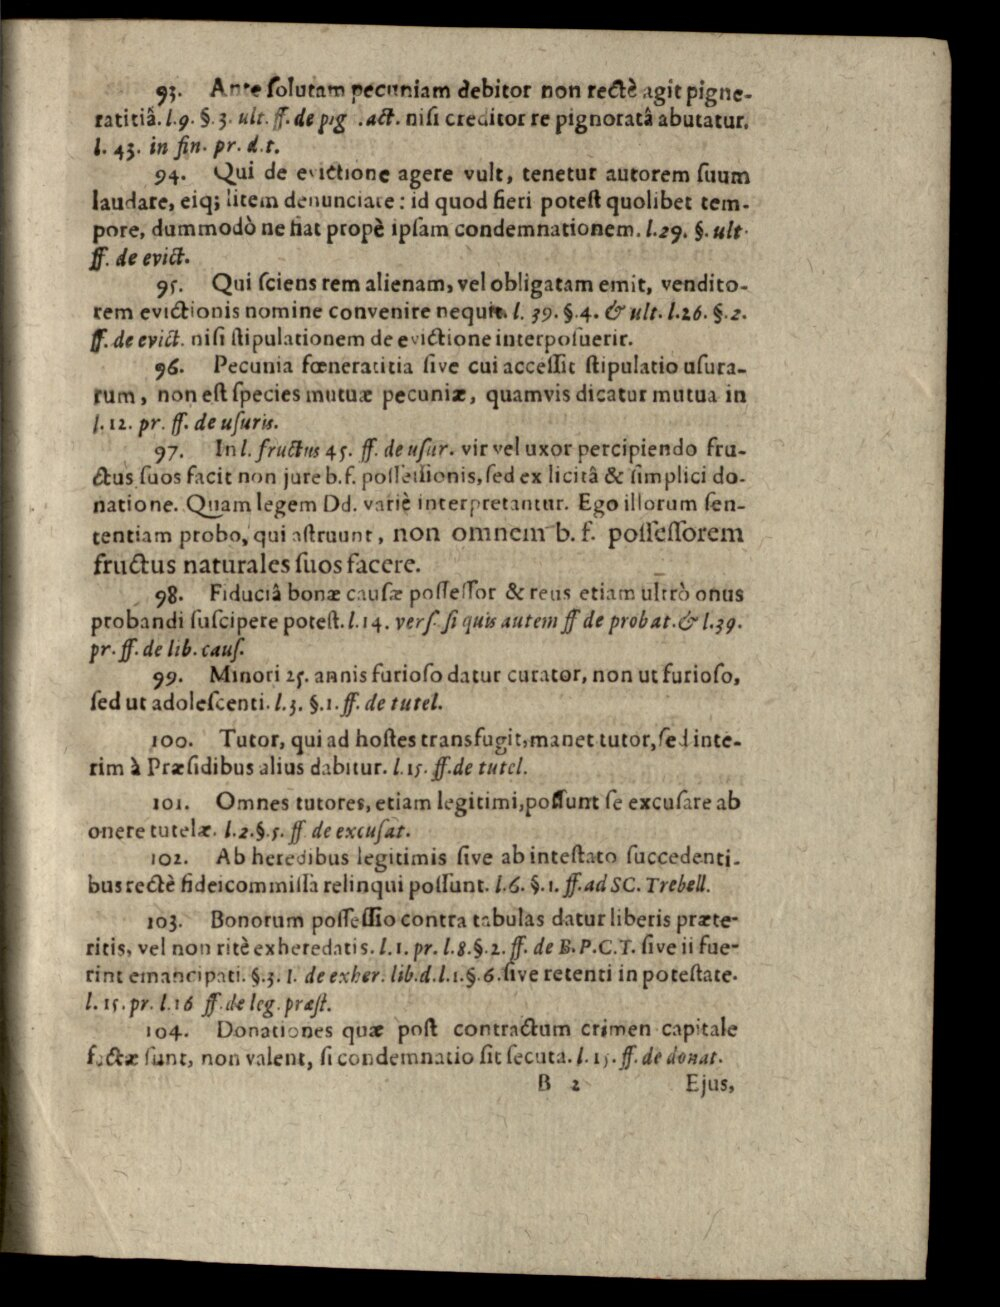 93. Ante ſolutam pecuniam debitor non rectè agit pigne-
ratitiâ. l. 9. §. 3. ult. ff. de pig .act. niſi creditor re pignoratâ abutatur.
l. 43. in fin. pr. d. t.
94. Qui de evictione agere vult, tenetur autorem ſuum
laudare, eiq; litem denunciare : id quod fieri poteſt quolibet tem-
pore, dummodò ne fiat propè ipſam condemnationem. l. 29. §. ult.
ff. de evict.
95. Qui ſciens rem alienam, vel obligatam emit, vendito-
rem evictionis nomine convenire nequit. l. 39. §. 4. & ult. l. 26. §. 2.
ff. de evict. niſi ſtipulationem de evictione interpoſuerit.
96. Pecunia fœneratitia ſive cui acceſſit ſtipulatio uſura-
rum, non eſt ſpecies mutuæ pecuniæ, quamvis dicatur mutua in
l. 12. pr. ff. de uſuris.
97. In l. fructus 45. ff. de uſur. vir vel uxor percipiendo fru-
ctus ſuos facit non jure b. f. poſſeſſionis, ſed ex licitâ & ſimplici do-
natione. Quam legem Dd. variè interpretantur. Ego illorum ſen-
tentiam probo, qui aſtruunt, non omnem b. f. poſſeſſorem
fructus naturales ſuos facere.
98. Fiduciâ bonæ cauſæ poſſeſſor & reus etiam ultrò onus
probandi ſuſcipere poteſt. l. 14. verſ. ſi quis autem ff de probat. & l. 39.
pr. ff. de lib. cauſ.
99. Minori 25. annis furioſo datur curator, non ut furioſo,
ſed ut adoleſcenti. l. 3. §. 1. ff. de tutel.
100. Tutor, qui ad hoſtes transfugit, manet tutor, ſed inte-
rim à Præſidibus alius dabitur. l. 15. ff. de tutel.
101. Omnes tutores, etiam legitimi, poſſunt ſe excuſare ab
onere tutelæ. l. 2. §. 5. ff de excuſat.
102. Ab heredibus legitimis ſive ab inteſtato ſuccedenti-
bus rectè fideicommiſſa relinqui poſſunt. l. 6. §. 1. ff. ad SC. Trebell.
103. Bonorum poſſeſſio contra tabulas datur liberis præte-
ritis, vel non ritè exheredatis. l. 1. pr. l. 8. §. 2. ff. de B. P. C. T. ſive ii fue-
rint emancipati. §. 3. I. de exher. lib. d. l. 1. §. 6. ſive retenti in poteſtate.
l. 15. pr. l. 16 ff. de leg. præſt.
104. Donationes quæ poſt contractum crimen capitale
factæ ſunt, non valent, ſi condemnatio ſit ſecuta. l. 15. ff. de donat.
B 2 Ejus,